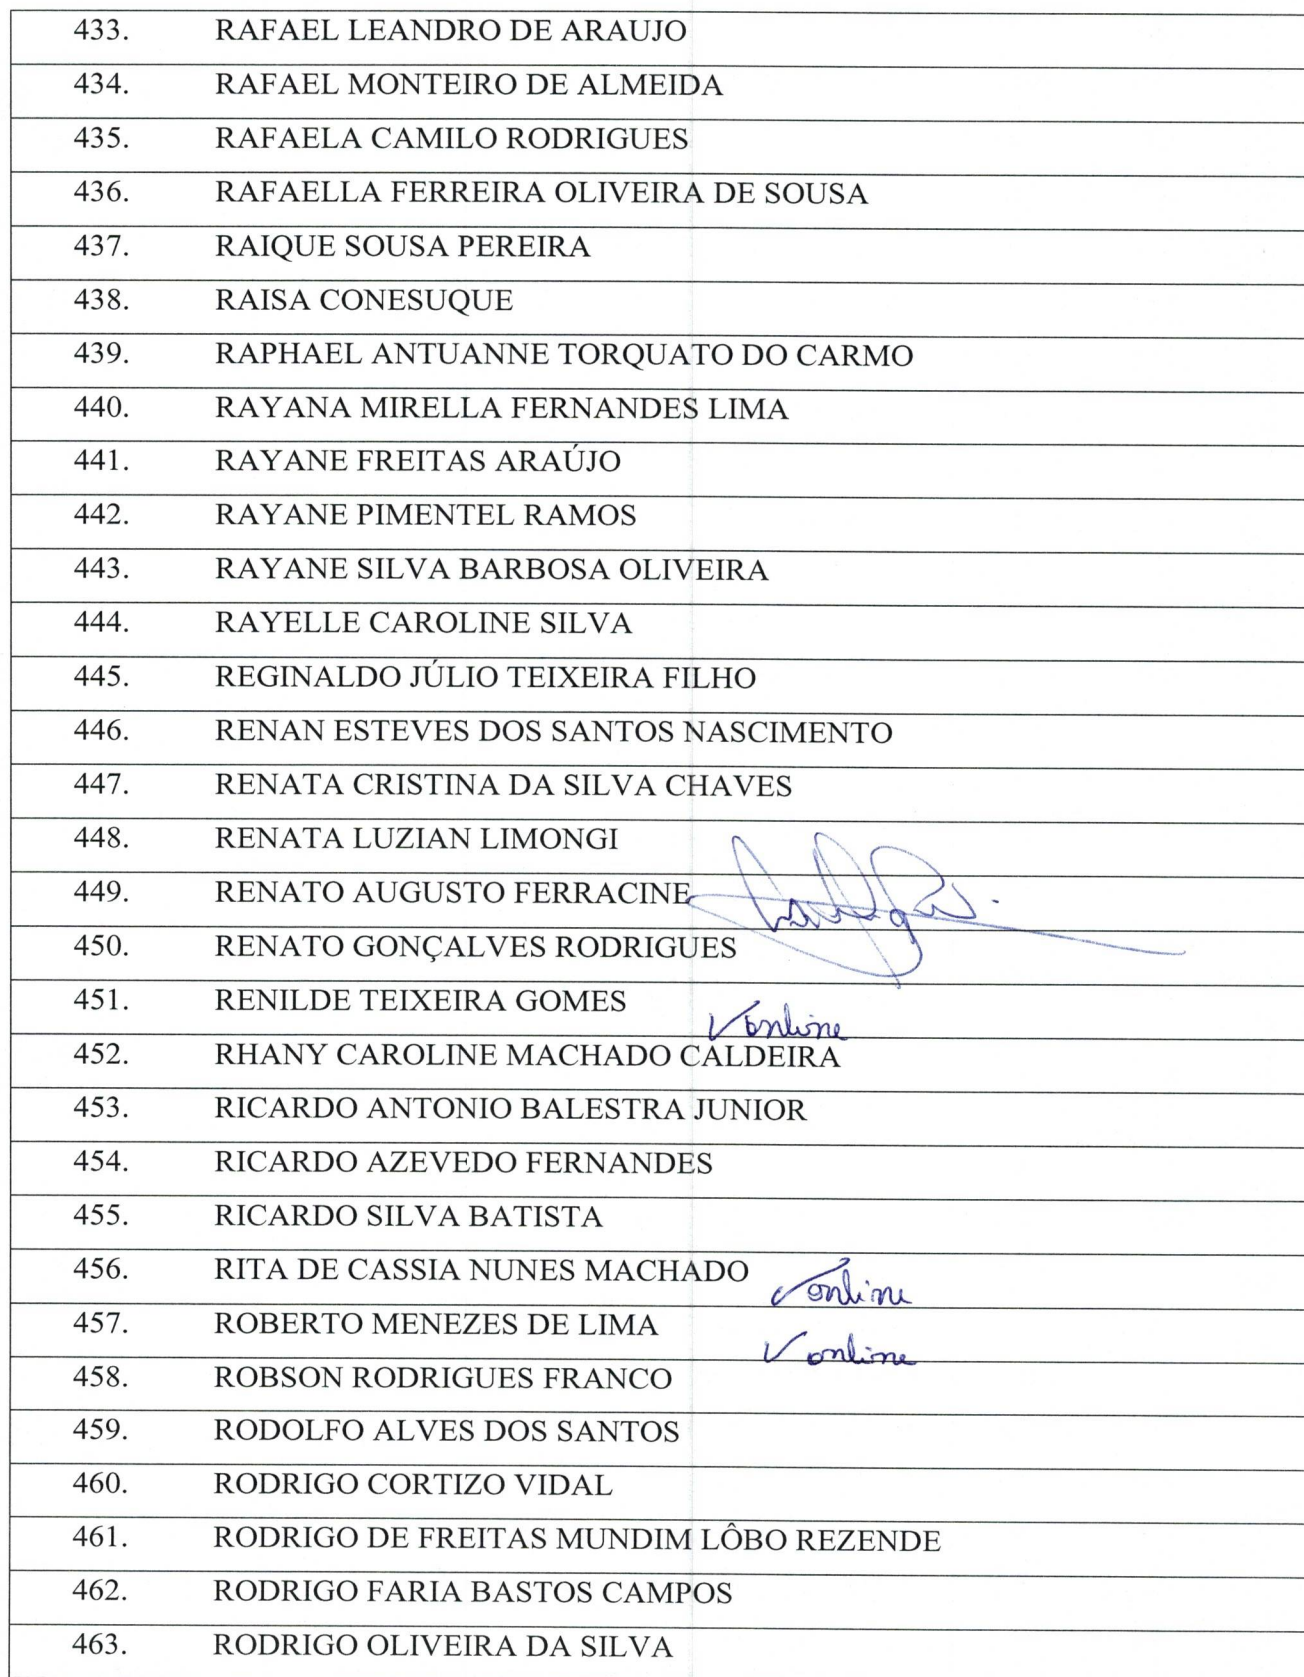 433. RAFAEL LEANDRO DE ARAUJO
434. RAFAEL MONTEIRO DE ALMEIDA
435. RAFAELA CAMILO RODRIGUES
436. RAFAELLA FERREIRA OLIVEIRA DE SOUSA
437. RAIQUE SOUSA PEREIRA
438. RAISA CONESUQUE
439. RAPHAEL ANTUANNE TORQUATO DO CARMO
440. RAYANA MIRELLA FERNANDES LIMA
441. RAYANE FREITAS ARAÚJO
442. RAYANE PIMENTEL RAMOS
443. RAYANE SILVA BARBOSA OLIVEIRA
444. RAYELLE CAROLINE SILVA
445. REGINALDO JÚLIO TEIXEIRA FILHO
446. RENAN ESTEVES DOS SANTOS NASCIMENTO
447. RENATA CRISTINA DA SILVA CHAVES
448. RENATA LUZIAN LIMONGI
449. RENATO AUGUSTO FERRACINE
450. RENATO GONÇALVES RODRIGUES
451. RENILDE TEIXEIRA GOMES ✓ online
452. RHANY CAROLINE MACHADO CALDEIRA
453. RICARDO ANTONIO BALESTRA JUNIOR
454. RICARDO AZEVEDO FERNANDES
455. RICARDO SILVA BATISTA
456. RITA DE CASSIA NUNES MACHADO ✓ online
457. ROBERTO MENEZES DE LIMA ✓ online
458. ROBSON RODRIGUES FRANCO
459. RODOLFO ALVES DOS SANTOS
460. RODRIGO CORTIZO VIDAL
461. RODRIGO DE FREITAS MUNDIM LÔBO REZENDE
462. RODRIGO FARIA BASTOS CAMPOS
463. RODRIGO OLIVEIRA DA SILVA